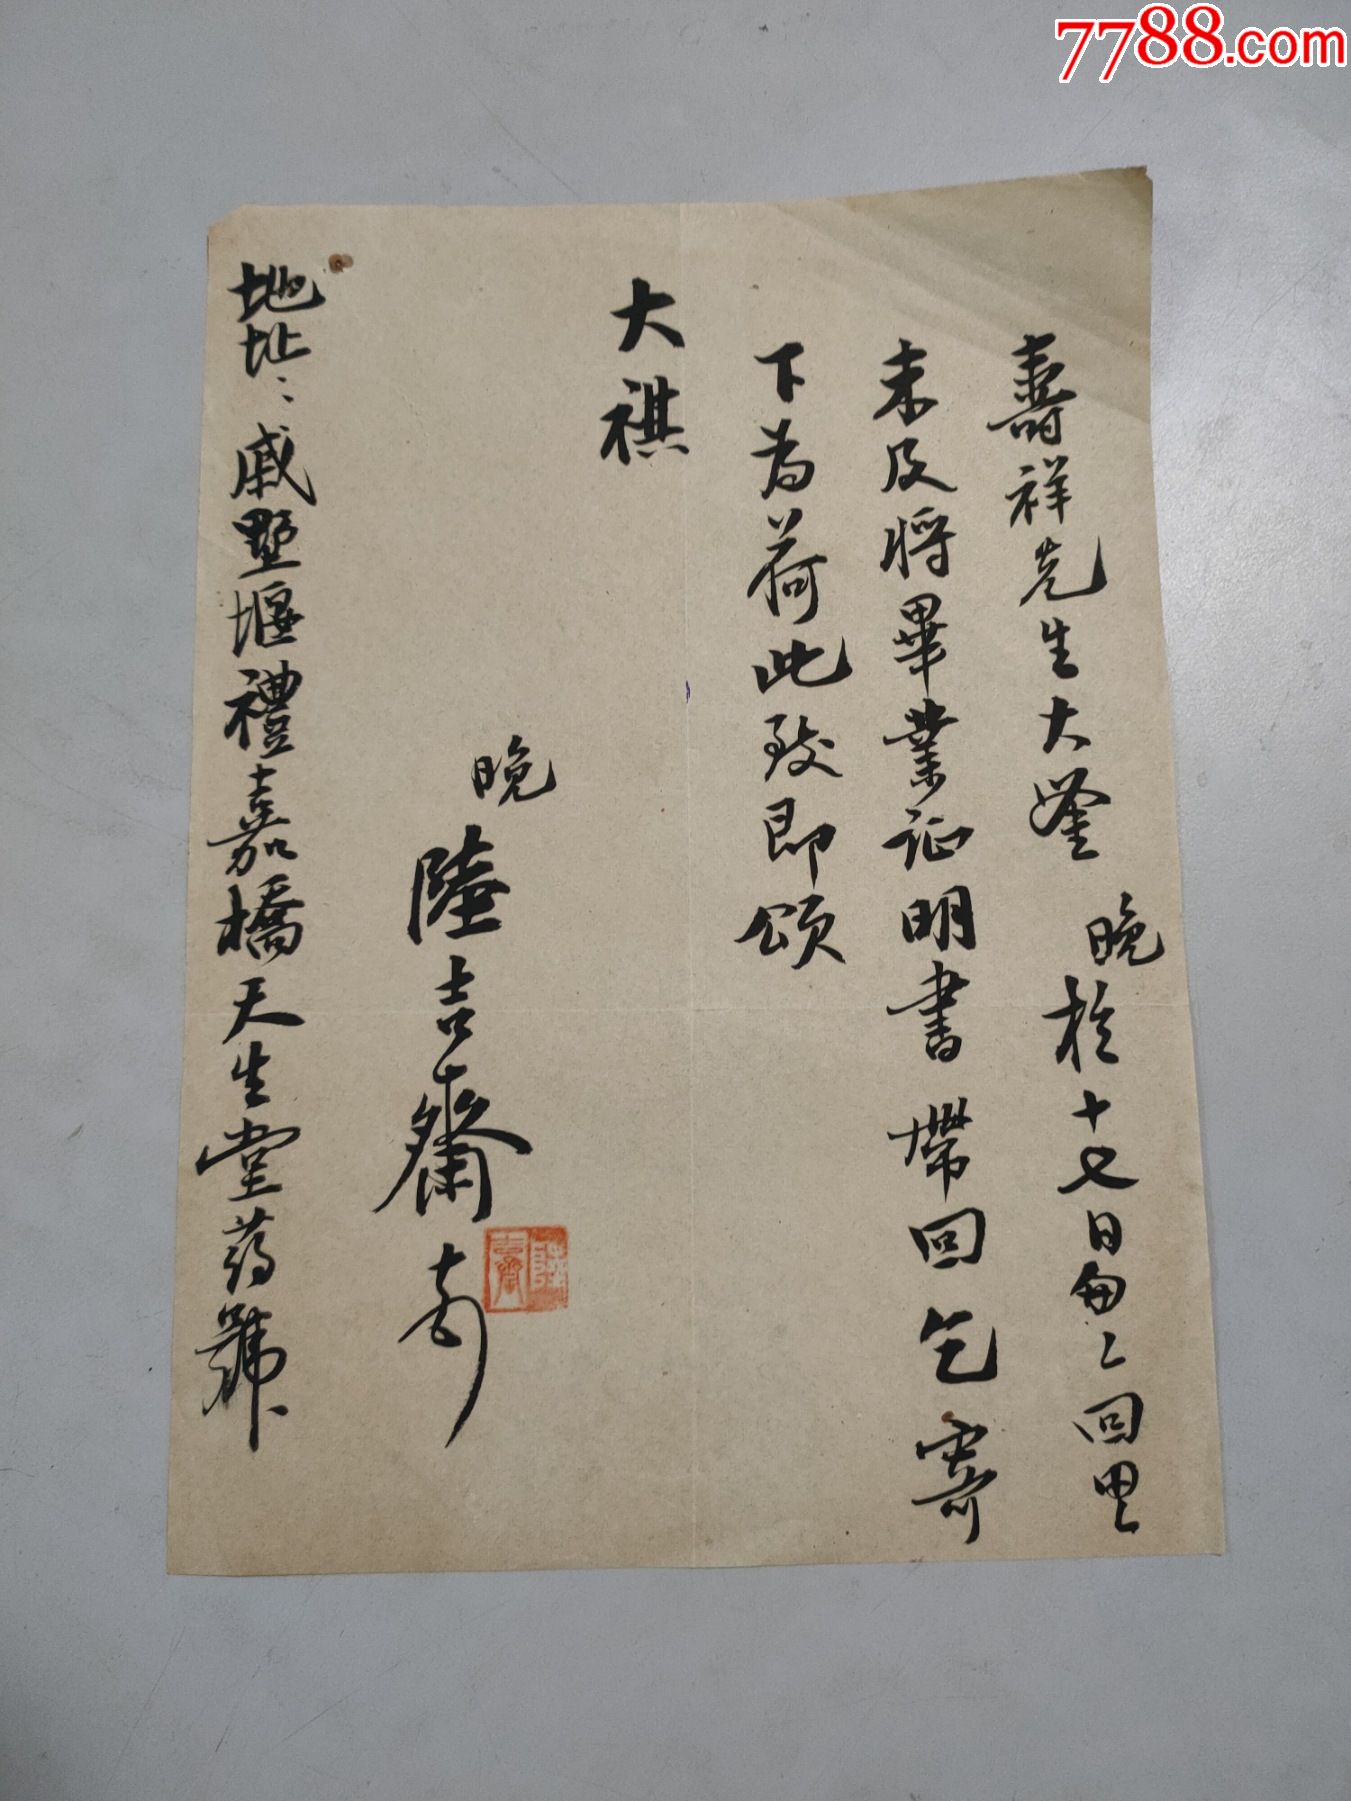 7788.com
壽祥先生大鉴 晚於十七日匆々回里
未及將畢業证明書帶回乞寄
下为荷此致即頌
大祺
晚
陸吉齋
地址：戚墅堰禮嘉橋天生堂药號
陸吉齋